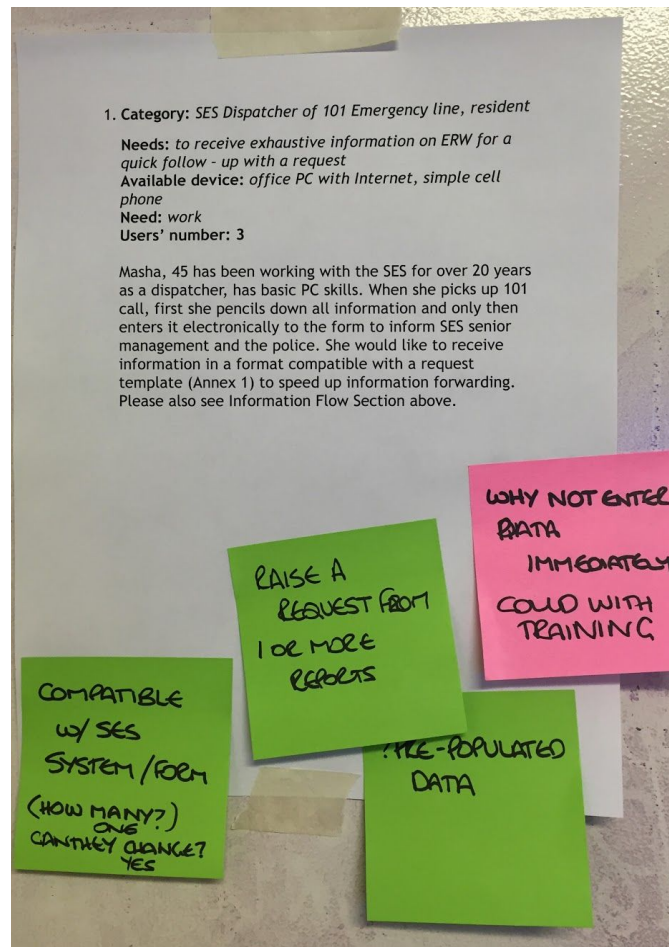 1. Category: SES Dispatcher of 101 Emergency line, resident
Needs: to receive exhaustive information on ERW for a
quick follow - up with a request
Available device: office PC with Internet, simple cell
phone
Need: work
Users' number: 3
Masha, 45 has been working with the SES for over 20 years
as a dispatcher, has basic PC skills. When she picks up 101
call, first she pencils down all information and only then
enters it electronically to the form to inform SES senior
management and the police. She would like to receive
information in a format compatible with a request
template (Annex 1) to speed up information forwarding.
Please also see Information Flow Section above.
WHY NOT ENTER
DATA
IMMEDIATELY
COULD WITH
TRAINING
RAISE A
REQUEST FROM
1 OR MORE
REPORTS
COMPATIBLE
W/ SES
SYSTEM/FORM
(HOW MANY?)
ONE
CAN THEY CHANGE?
YES
?PRE-POPULATED
DATA